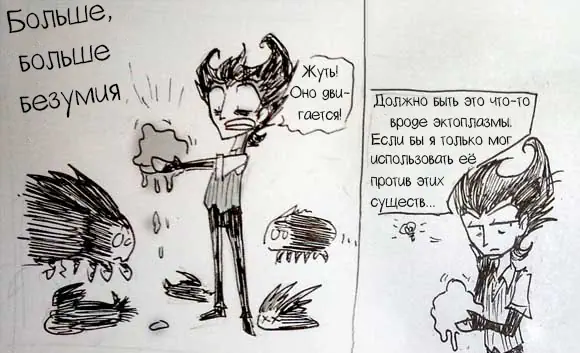 Больше,
больше
безумия
Жуть!
Оно дви-
гается!
Должно быть это что-то
вроде эктоплазмы.
Если бы я только мог
использовать её
против этих
существ...